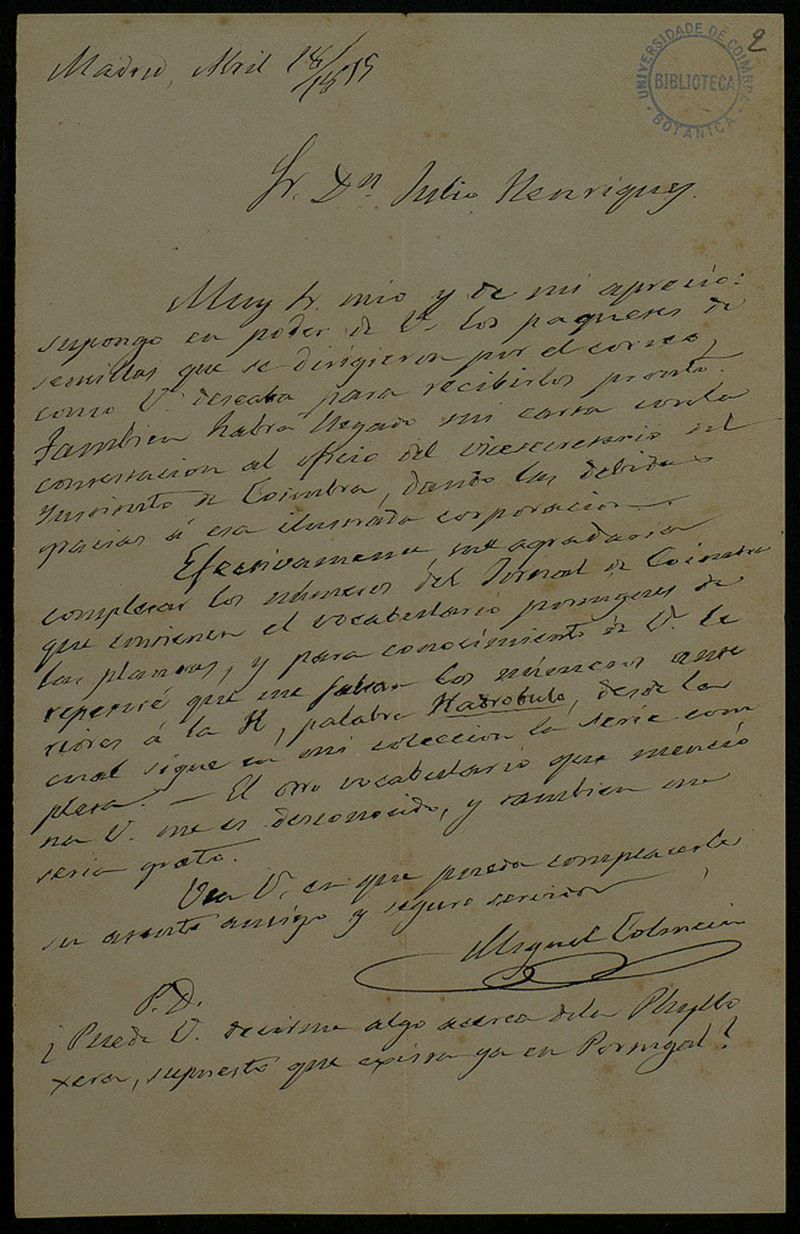 2
UNIVERSIDADE DE COIMBRA
BIBLIOTECA
BOTANICA
Madrid, Abril 18/1879
Sr. Dn. Julio Henriques.
Muy Sr. mio y de mi aprecio:
supongo en poder de V. los paquetes de
semillas que se dirigieron por el correo,
como V. deseaba para recibirlos pronto.
Tambien habrá llegado mi carta con la
contestacion al oficio del vicesecretario del
Instituto de Coimbra, dando las debidas
gracias á esa ilustrada corporacion.
Efectivamente, me agradaria
completar los números del Jornal de Coimbra
que contienen el vocabulario portugues de
las plantas, y para conocimiento de V. le
repetiré que me faltan los números ante
riores á la H, palabra desde la
cual sigue en mi coleccion la serie com
pleta. — El otro vocabulario que mencio
na V. me es desconocido, y tambien me
seria grato.
Vea V. en que pueda complacerle
su atento amigo y seguro servidor
Miguel Colmeiro
P.D.
¿Puede V. decirme algo acerca de la Phyllo
xera, supuesto que exista ya en Portugal?